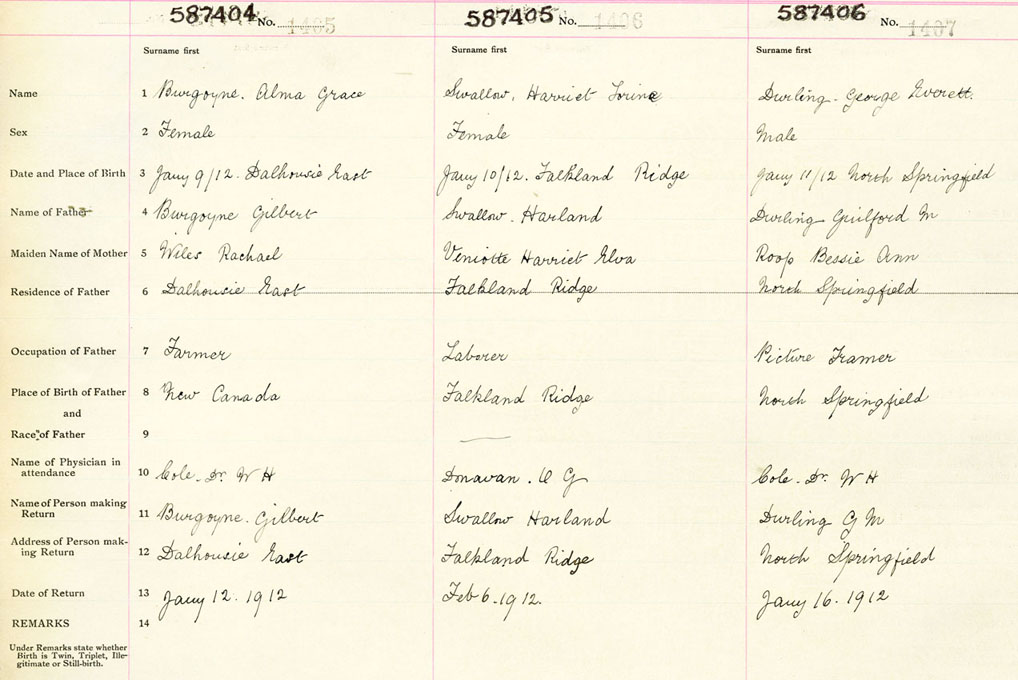 587404 No. 1405 587405 No. 1406 587406 No. 1407
Surname first Surname first Surname first
Name 1 Burgoyne. Alma Grace Swallow, Harriet Lorine Durling. George Everett.
Sex 2 Female Female Male
Date and Place of Birth 3 Jany 9/12. Dalhousie East Jany 10/12. Falkland Ridge Jany 11/12 North Springfield
Name of Father 4 Burgoyne Gilbert Swallow. Harland Durling Guilford M
Maiden Name of Mother 5 Wiles Rachael Veniotte Harriet Elva Roop Bessie Ann
Residence of Father 6 Dalhousie East Falkland Ridge North Springfield
Occupation of Father 7 Farmer Laborer Picture Framer
Place of Birth of Father 8 New Canada Falkland Ridge North Springfield
and
Race of Father 9
Name of Physician in
attendance 10 Cole. Dr. W H Donavan. O G Cole. Dr. W H
Name of Person making
Return 11 Burgoyne. Gilbert Swallow Harland Durling G M
Address of Person mak-
ing Return 12 Dalhousie East Falkland Ridge North Springfield
Date of Return 13 Jany 12. 1912 Feb 6. 1912. Jany 16. 1912
REMARKS 14
Under Remarks state whether
Birth is Twin, Triplet, Ille-
gitimate or Still-birth.